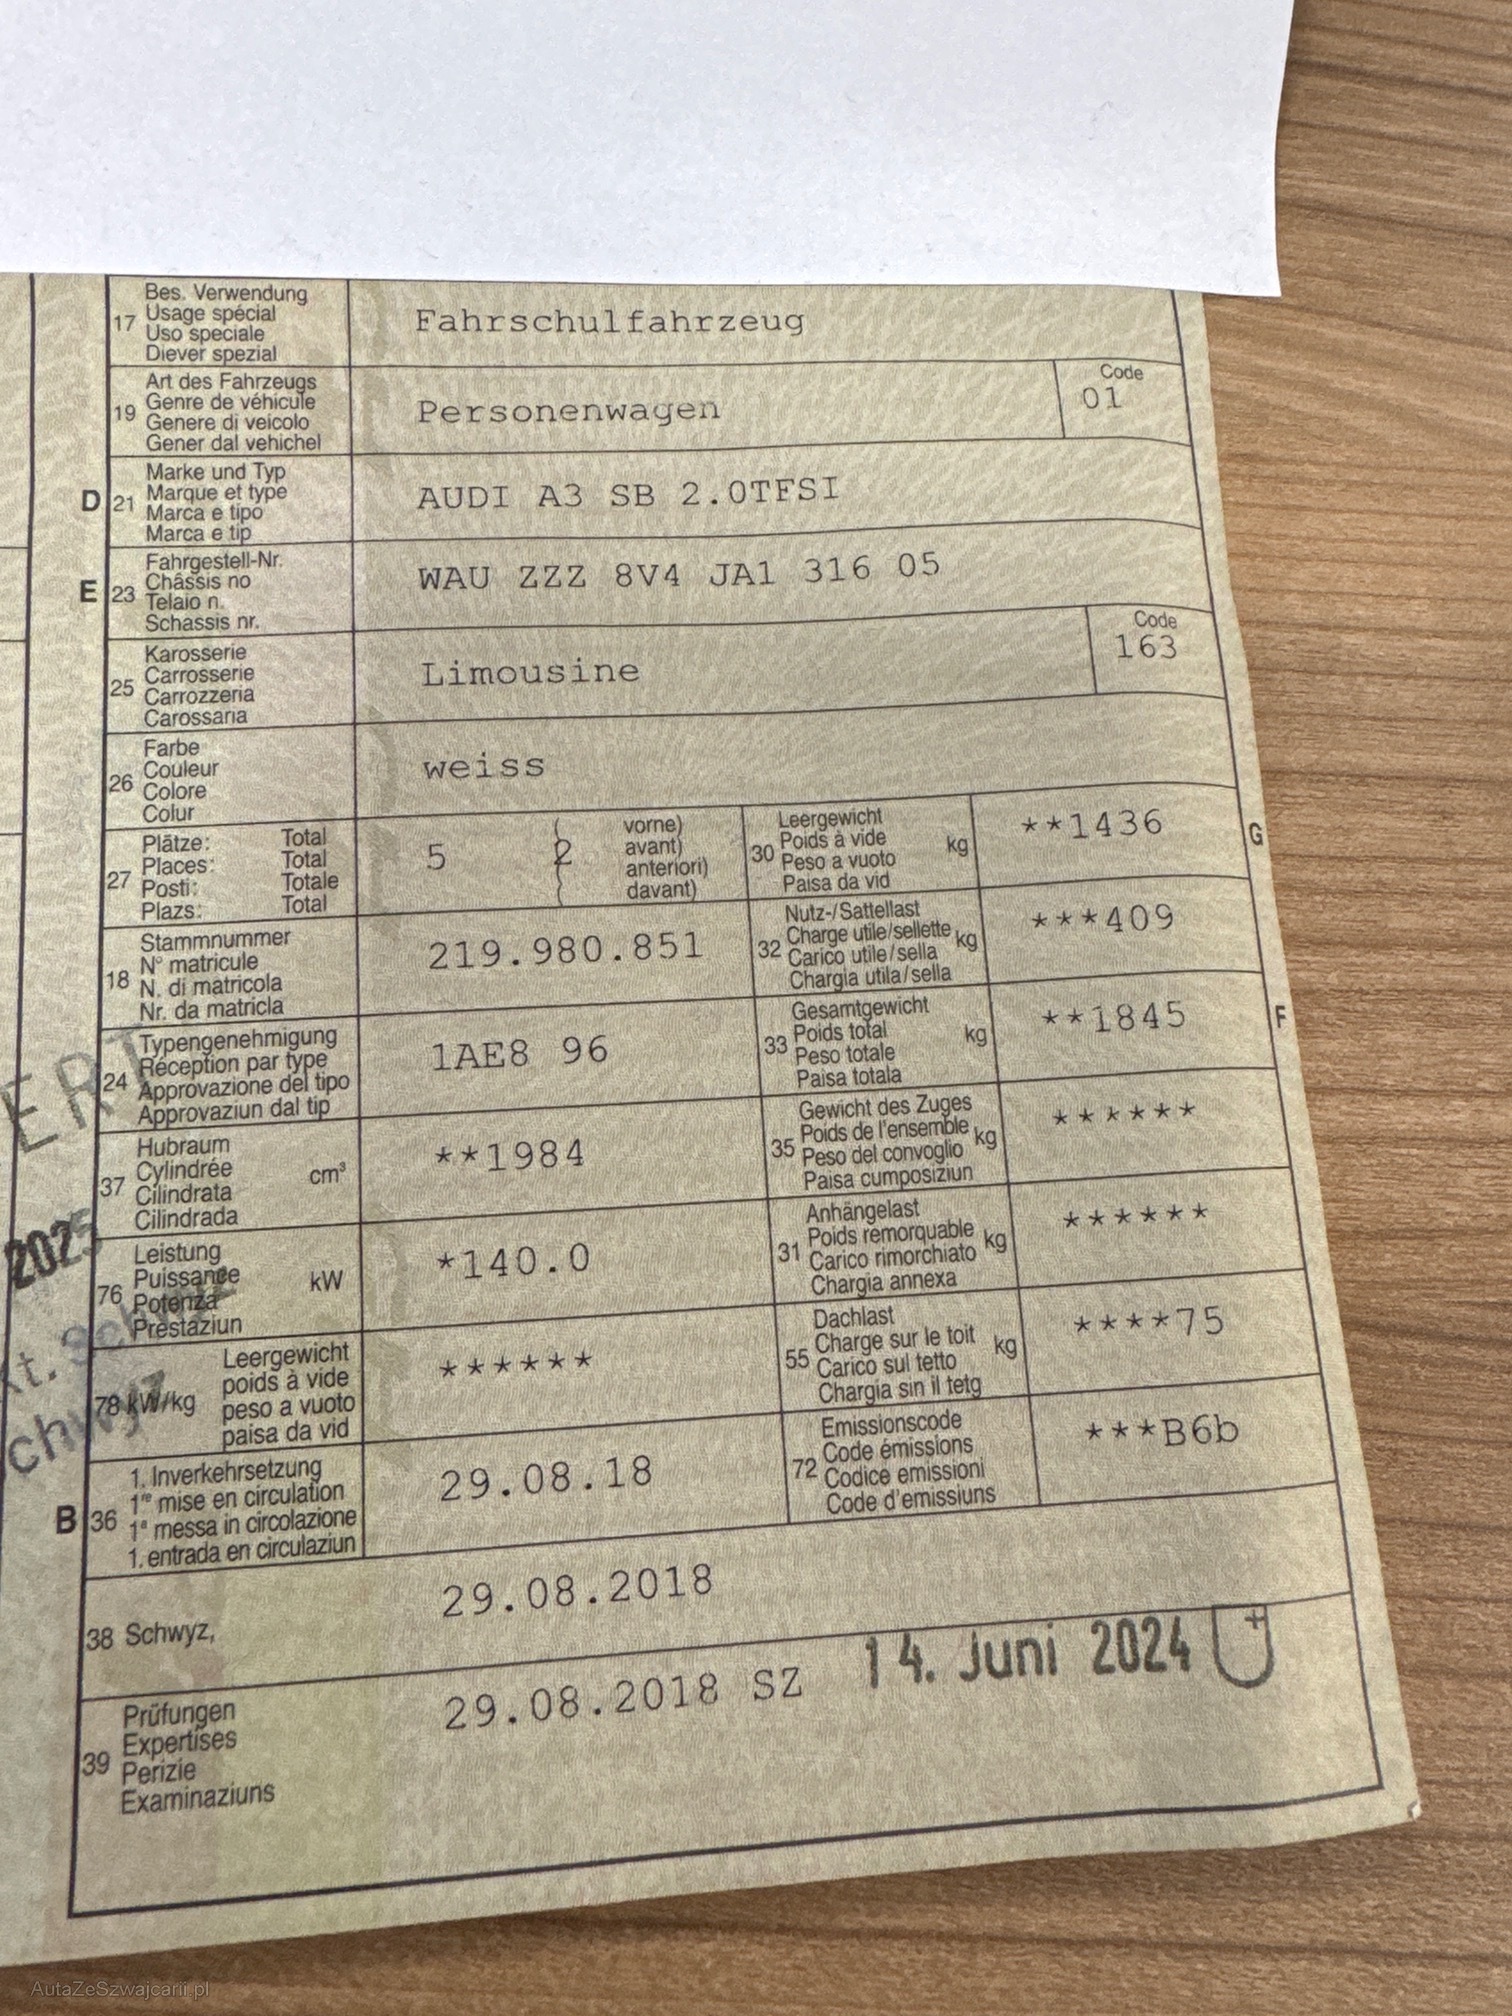 17 Bes. Verwendung
Usage spécial
Uso speciale
Diever spezial
Fahrschulfahrzeug
19 Art des Fahrzeugs
Genre de véhicule
Genere di veicolo
Gener dal vehichel
Personenwagen
Code
01
D 21 Marke und Typ
Marque et type
Marca e tipo
Marca e tip
AUDI A3 SB 2.0TFSI
E 23 Fahrgestell-Nr.
Châssis no
Telaio n.
Schassis nr.
WAU ZZZ 8V4 JA1 316 05
25 Karosserie
Carrosserie
Carrozzeria
Carossaria
Limousine
Code
163
26 Farbe
Couleur
Colore
Colur
weiss
27 Plätze: Total
Places: Total
Posti: Totale
Plazs: Total
5 ( 2 vorne)
avant)
anteriori)
davant)
30 Leergewicht
Poids à vide
Peso a vuoto
Paisa da vid
kg
**1436
G
18 Stammnummer
N° matricule
N. di matricola
Nr. da matricla
219.980.851
32 Nutz-/Sattellast
Charge utile/sellette
Carico utile/sella
Chargia utila/sella
kg
***409
24 Typengenehmigung
Réception par type
Approvazione del tipo
Approvaziun dal tip
1AE8 96
33 Gesamtgewicht
Poids total
Peso totale
Paisa totala
kg
**1845
F
37 Hubraum
Cylindrée
Cilindrata
Cilindrada
cm³
**1984
35 Gewicht des Zuges
Poids de l'ensemble
Peso del convoglio
Paisa cumposiziun
kg
******
76 Leistung
Puissance
Potenza
Prestaziun
kW
*140.0
31 Anhängelast
Poids remorquable
Carico rimorchiato
Chargia annexa
kg
******
78 kW/kg Leergewicht
poids à vide
peso a vuoto
paisa da vid
******
55 Dachlast
Charge sur le toit
Carico sul tetto
Chargia sin il tetg
kg
****75
B 36 1. Inverkehrsetzung
1re mise en circulation
1a messa in circolazione
1. entrada en circulaziun
29.08.18
72 Emissionscode
Code émissions
Codice emissioni
Code d'emissiuns
***B6b
38 Schwyz,
29.08.2018
39 Prüfungen
Expertises
Perizie
Examinaziuns
29.08.2018 SZ
14. Juni 2024
ERT
2025
Kt. Schwyz
chwyz
AutaZeSzwajcarii.pl